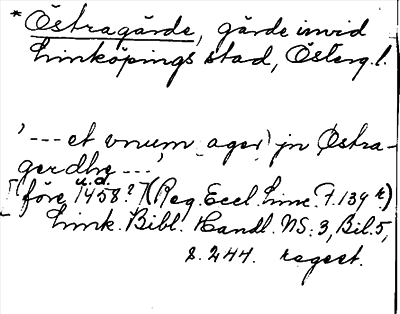 * Östragärde, gärde invid
Linköpings stad, Österg.l.
'--- et vnum ager) jn Østra-
gerdhe ---'
u.d.
[före 1458?] (Reg. Eccl. Linc. f. 139 r)
Link. Bibl. Handl. NS: 3, Bil. 5,
s. 244. regest.